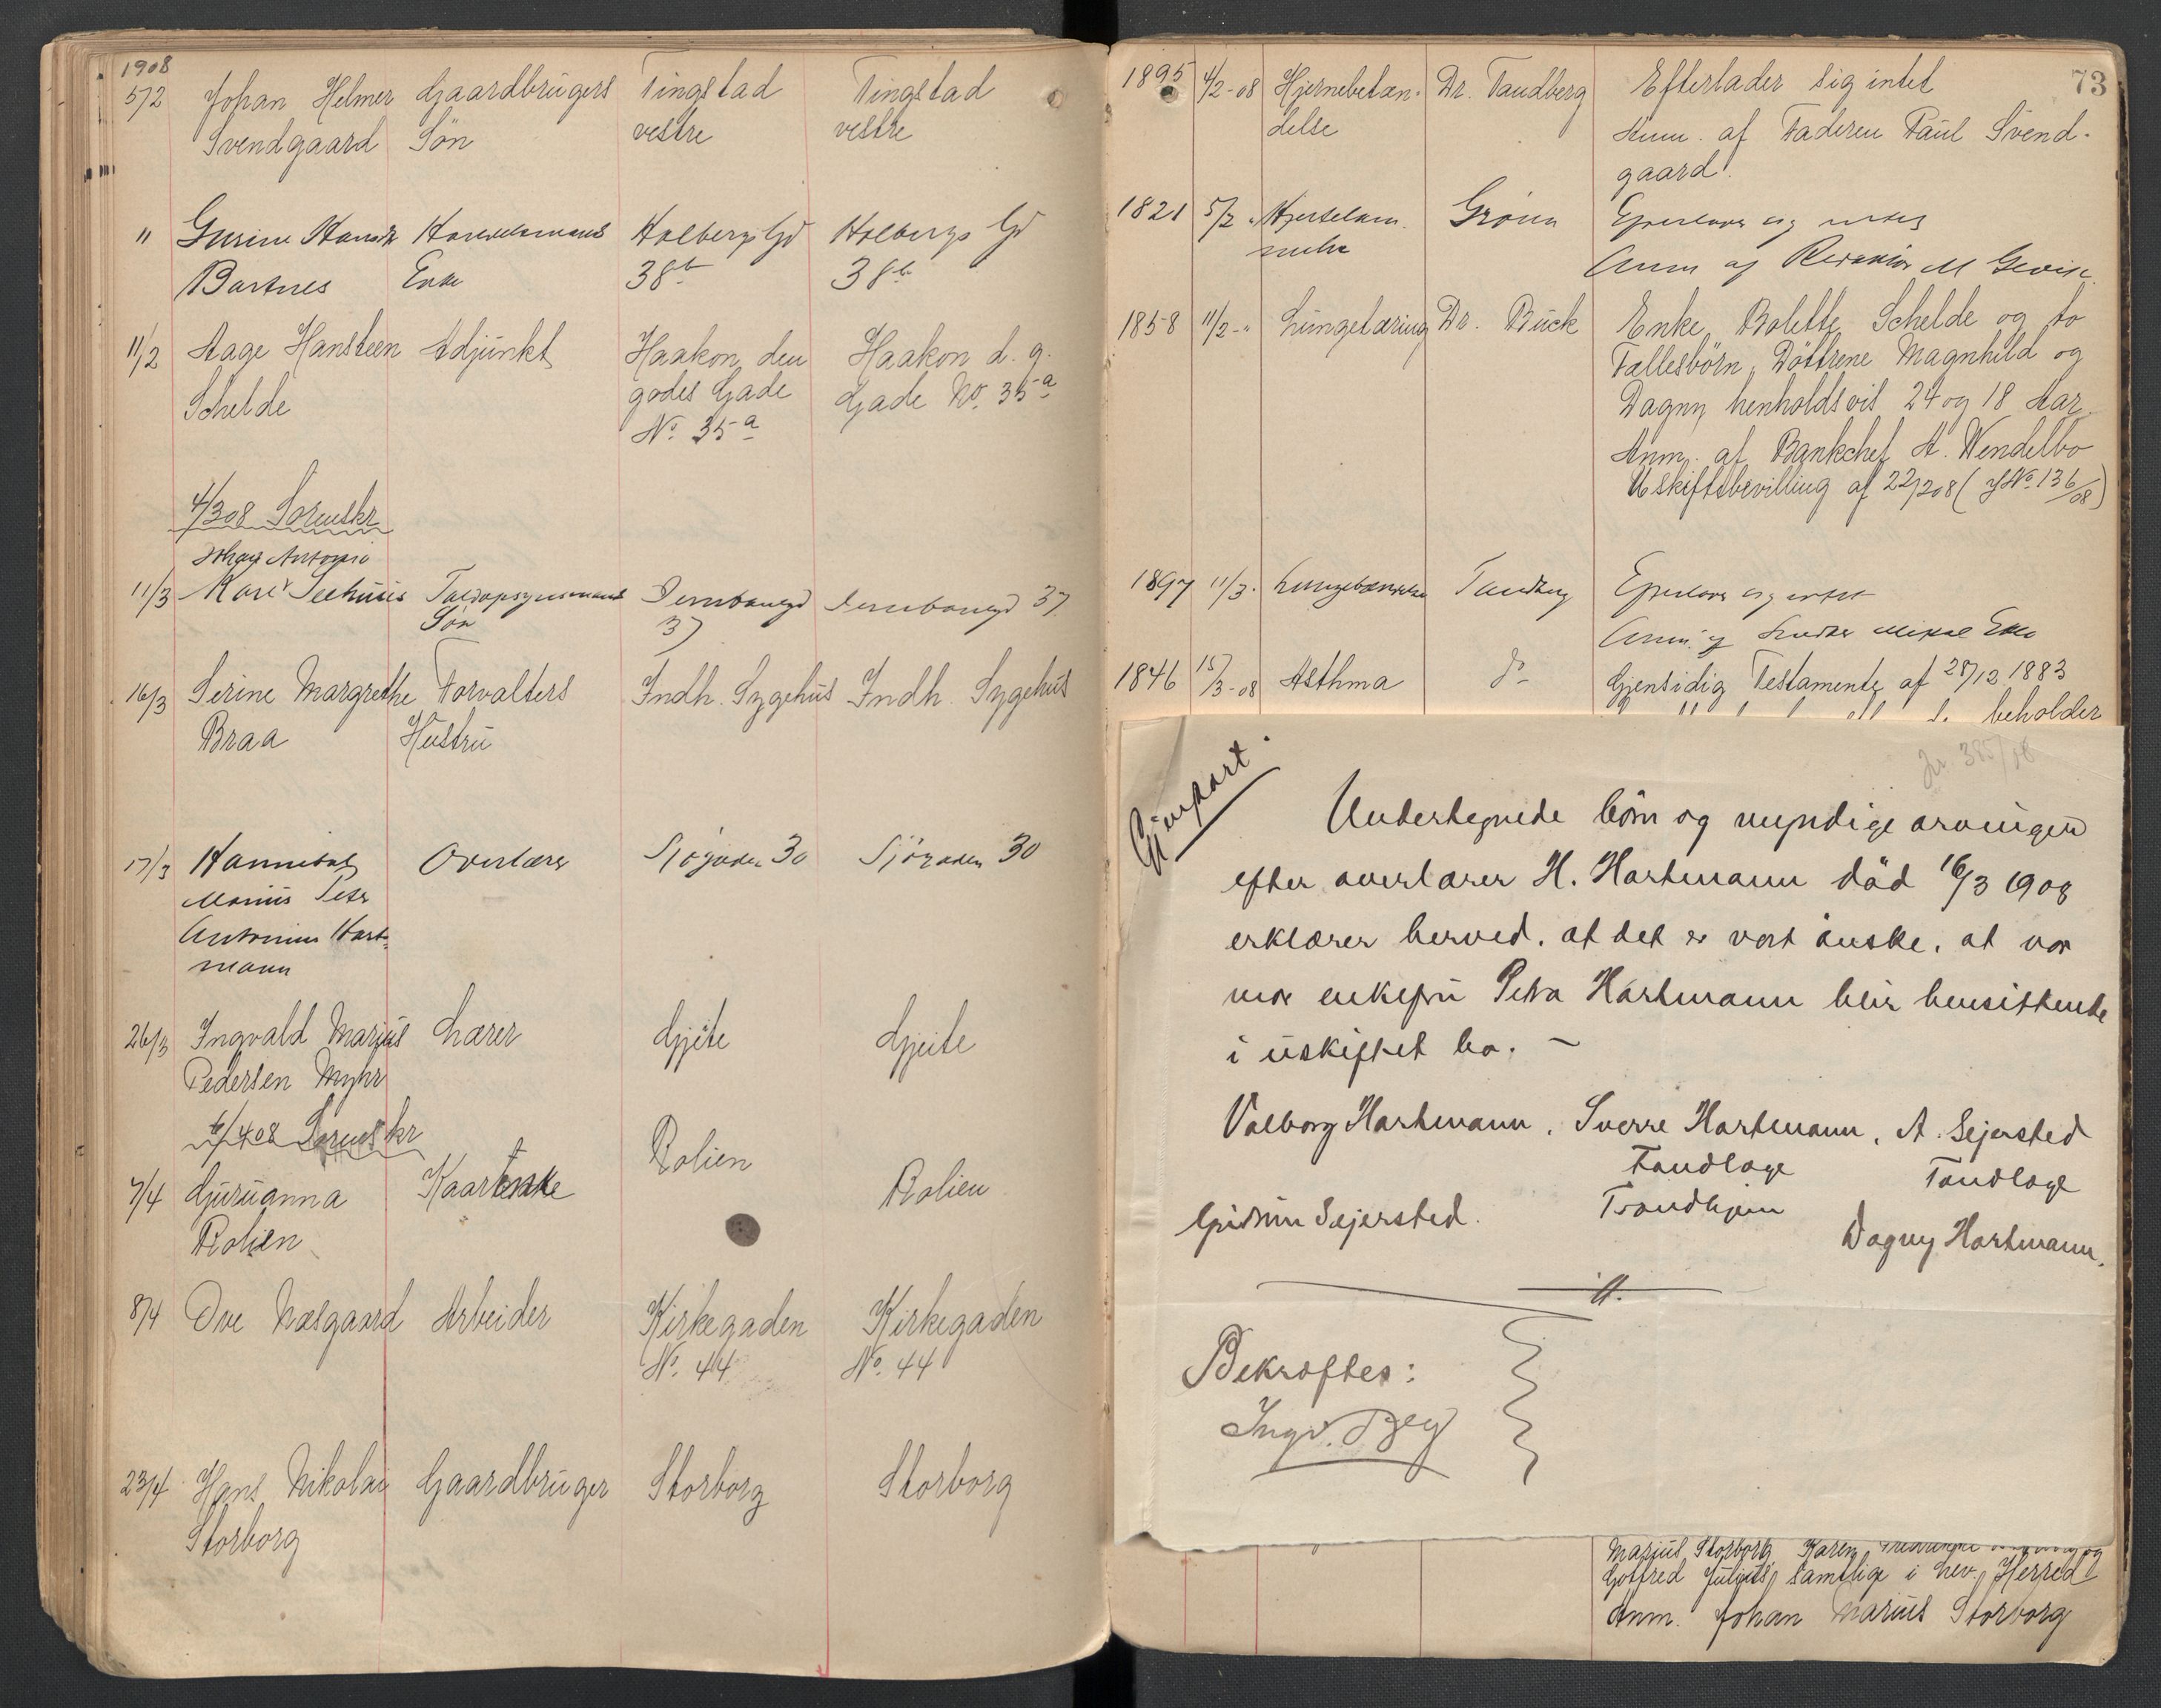 1908
5/2 Johan Helmer Gaardbrugers Tingstad Tingstad
Svendgaard Søn vestre vestre
" Gurine Hansdr Handelsmands Holbergs Gd Holbergs Gd
Bartnes Enke 38b 38b
11/2 Aage Hansteen Adjunkt Haakon den Haakon d. g.
Schelde godes Gade Gade No. 35a
No. 35a
4/3 08 Sorenskr
Johan Antonio
11/3 Karl Seehuus Søn 37 37
16/3 Serine Margrethe Forvalters Indh. Sygehus Indh. Sygehus
Braa Hustru
17/3 Hannibal Overlærer Sjøgaden 30 Sjøgaden 30
Marius Peter
Antonius Hart-
mann
26/3 Ingvald Marius Lærer Gjeite Gjeite
Pedersen Myhr
6/4 08 Sorenskr
7/4 Guruanna Kaarenke Rolien Rolien
Rolien
8/4 Ove Næsgaard Arbeider Kirkegaden Kirkegaden
No. 44 No. 44
23/4 Hans Nikolai Gaardbruger Storborg Storborg
Storborg
73
1895 4/2-08 Hjernebetæn- Dr. Tandberg Efterlader sig intet
delse Anm. af Faderen Paul Svend-
gaard.
1821 5/2 " Grønn Efterlader sig intet
Anm af Redaktør M
1858 11/2-" Lungetæring Dr. Buck Enke Bolette Schelde og to
Fællesbørn, Døttrene Magnhild og
Dagny henholdsvis 24 og 18 Aar.
Anm. af Bankchef A. Wendelbo
Uskiftebevilling af 22/2 08 (J No. 136/08)
1897 11/3 Lungebetændelse Tandberg Efterlader sig intet
Anm. af
1846 15/3-08 Asthma do Gjensidig Testamente af 28/12 1883
beholder
Jr. 385/08
Gjenpart.
Undertegnede børn og myndige arvinger
efter overlærer H. Hartmann død 16/3 1908
erklærer herved, at det er vort ønske, at vor
mor enkefru Petra Hartmann blir hensittende
i uskiftet bo. —
Valborg Hartmann, Sverre Hartmann, A. Sejersted
Tandlæge Tandlæge
Gudrun Sejersted. Trondhjem
Dagny Hartmann.
Bekræftes:
Ingv.
Marius Storborg, Karen, Fredrikke og
Gotfred Julius, samtlige i Lev. Herred
Anm. Johan Marius Storborg